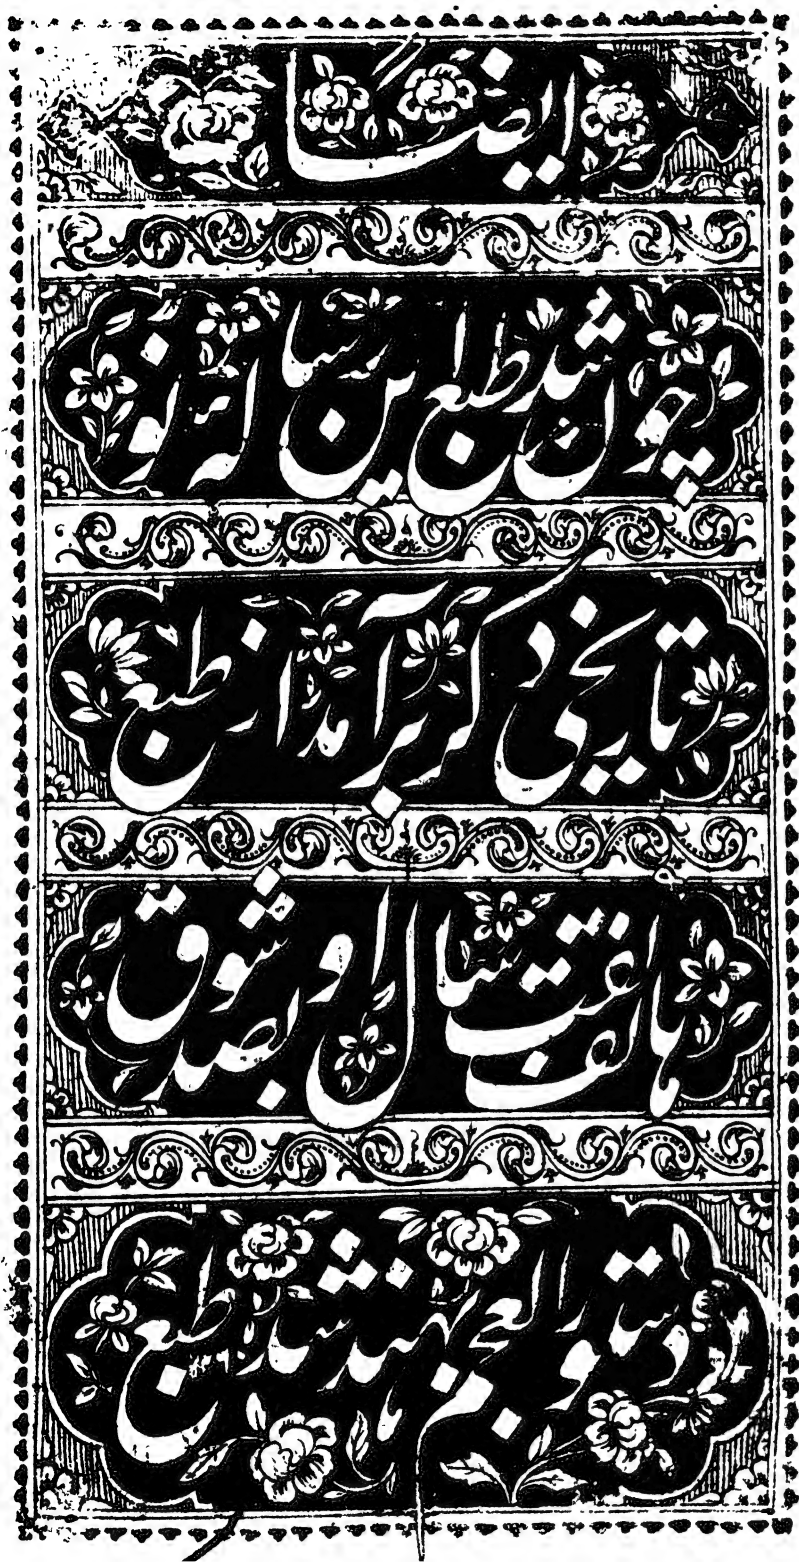 ایضا
چون شد طبع این رساله نو
تاریخی دگر برآمد از طبع
هاتف گفت سال او بصد شوق
دستور العجم بهند شد طبع